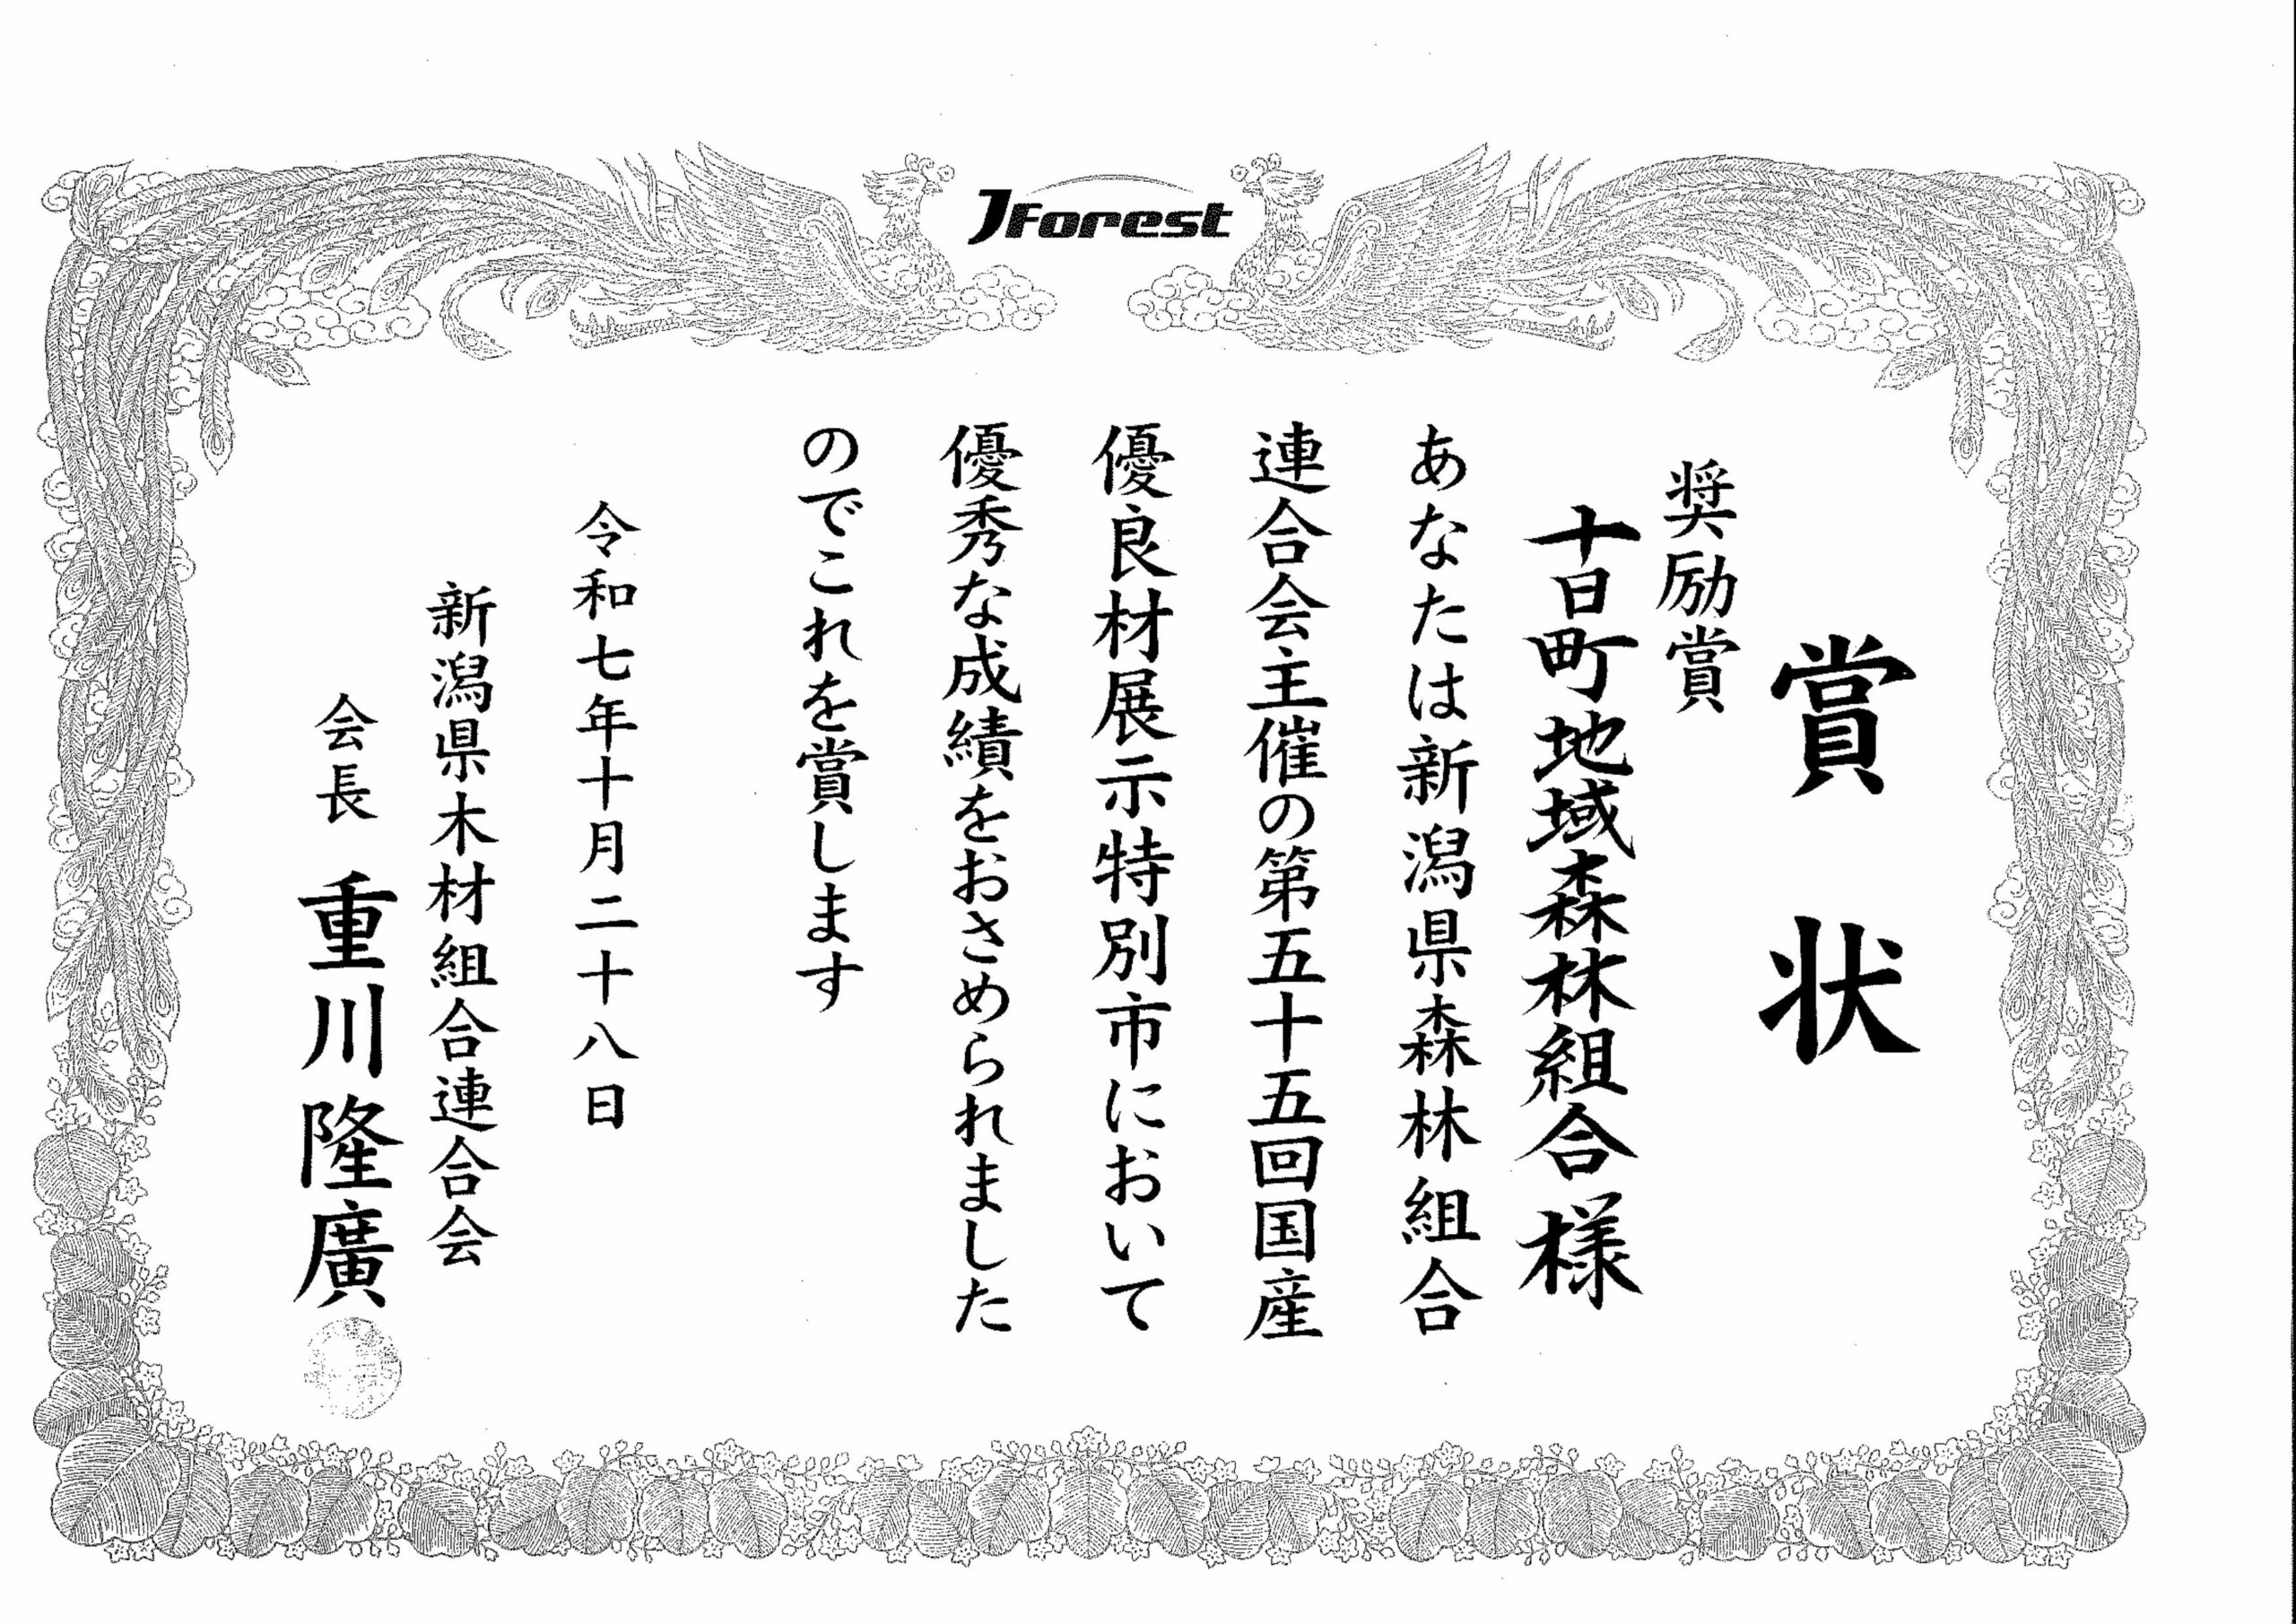 JForest
賞状
奨励賞
十日町地域森林組合様
あなたは新潟県森林組合
連合会主催の第五十五回国産
優良材展示特別市において
優秀な成績をおさめられました
のでこれを賞します
令和七年十月二十八日
新潟県木材組合連合会
会長 重川隆廣